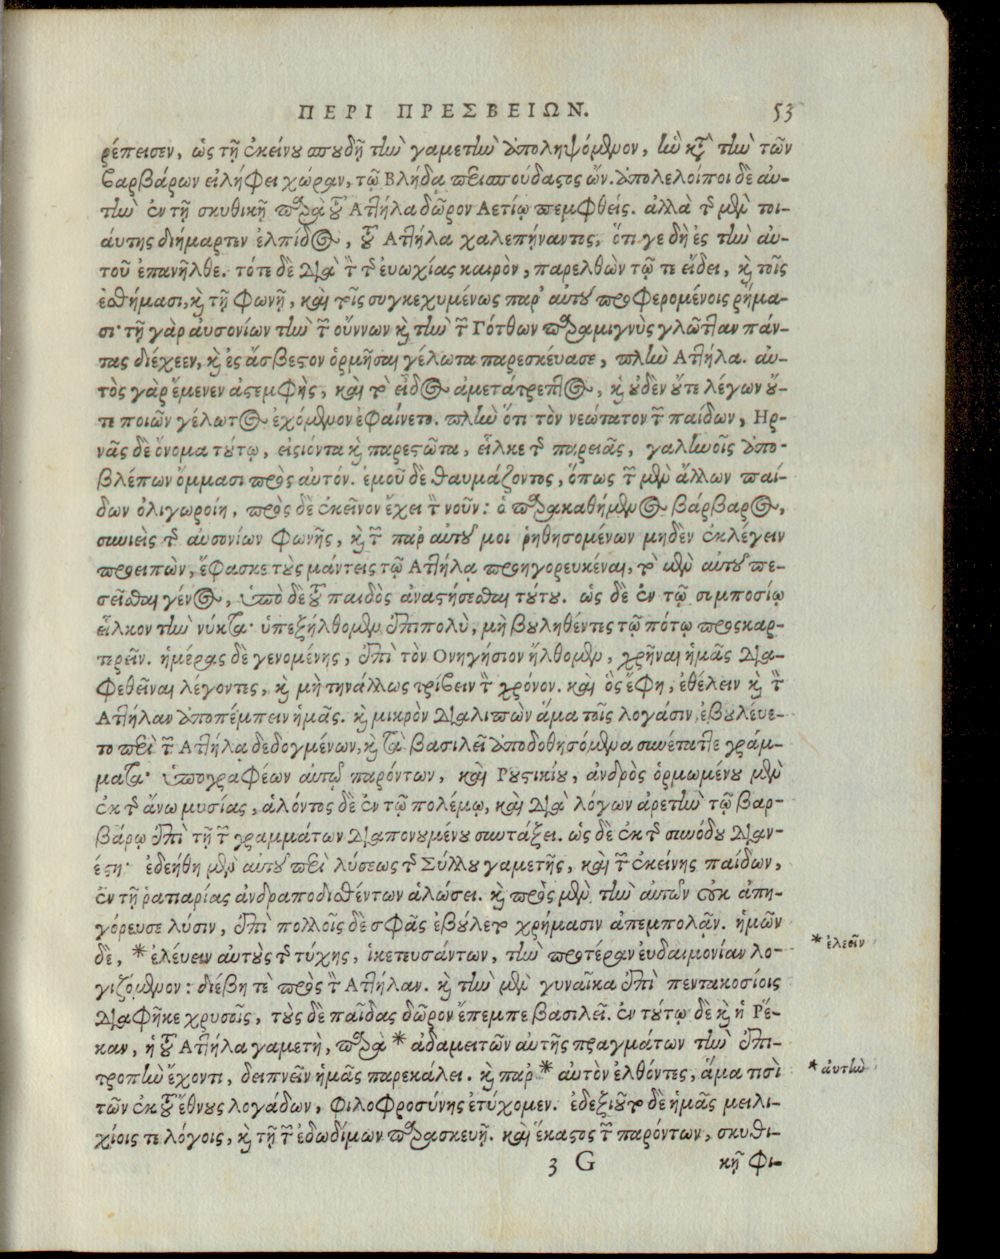 ΠΕΡΙ ΠΡΕΣΒΕΙΩΝ. 53
ρέπεισεν, ὡς τῇ ἐκείνου σπουδῇ τὴν γαμετὴν ἀποληψόμενον, ἣν κατὰ τὴν τῶν
βαρβάρων εἰλήφει χώραν, τῷ Βλήδᾳ περισπούδαστος ὤν. ἀπολελοίποι δὲ αὐ-
τὴν ἐν τῇ σκυθικῇ παρὰ τοῦ Ἀττήλα δῶρον Ἀετίῳ πεμφθείς. ἀλλὰ τῆς μὲν τοι-
άυτης διήμαρτεν ἐλπίδος, τοῦ Ἀττήλα χαλεπήναντος, ὅτι γε δὴ ἐς τὴν αὐ-
τοῦ ἐπανῆλθε. τότε δὲ διὰ τὸν τῆς ἐυωχίας καιρὸν, παρελθὼν τῷ τε εἴδει, καὶ τοῖς
ἐσθήμασι, καὶ τῇ φωνῇ, καὶ τοῖς συγκεχυμένως παρ' αὐτοῦ προφερομένοις ρήμα-
σι· τῇ γὰρ ἀυσονίων τὴν τῶν οὔννων καὶ τὴν τῶν Γότθων παραμιγνὺς γλῶτταν πάν-
τας διέχεεν, καὶ ἐς ἄσβεστον ὁρμῆσαι γέλωτα παρεσκέυασε, πλὴν Ἀττήλα. αὐ-
τὸς γὰρ ἔμενεν ἀστεμφὴς, καὶ τὸ εἶδος ἀμετάτρεπτος, καὶ οὐδὲν οὔτε λέγων οὔ-
τε ποιῶν γέλωτος ἐχόμενον ἐφαίνετο. πλὴν ὅτι τὸν νεώτατον τῶν παίδων, Ηρ-
νᾶς δὲ ὄνομα τούτῳ, εἰσιόντα καὶ παρεστῶτα, εἷλκε τῆς παρειᾶς, γαληνοῖς ἀπο-
βλέπων ὄμμασι πρὸς αὐτόν. ἐμοῦ δὲ θαυμάζοντος, ὅπως τῶν μὲν ἄλλων παί-
δων ὀλιγωροίη, πρὸς δὲ ἐκεῖνον ἔχει τὸν νοῦν: ὁ παρακαθήμενος βάρβαρος,
συνιεὶς τῆς ἀυσονίων φωνῆς, καὶ τῶν παρ αὐτοῦ μοι ῥηθησομένων μηδὲν ἐκλέγειν
προειπὼν, ἔφασκε τοὺς μάντεις τῷ Ἀττήλᾳ προηγορευκέναι, τὸ μὲν αὐτοῦ πε-
σεῖσθαι γένος, ὑπὸ δὲ τοῦ παιδὸς ἀναστήσεσθαι τούτου. ὡς δὲ ἐν τῷ συμποσίῳ
εἷλκον τὴν νύκτα· ὑπεξήλθομεν ἐπιπολὺ, μὴ βουληθέντες τῷ πότῳ προσκαρ-
τερεῖν. ἡμέρας δὲ γενομένης, ἐπὶ τὸν Ονηγήσιον ἤλθομεν, χρῆναι ἡμᾶς δια-
φεθεῖναι λέγοντες, καὶ μὴ τηνάλλως τρίβειν τὸν χρόνον. καὶ ὃς ἔφη, ἐθέλειν καὶ τὸν
Ἀττήλαν ἀποπέμπειν ἡμᾶς. καὶ μικρὸν διαλιπὼν ἅμα τοῖς λογάσιν ἐβουλέυε-
το περὶ τῶν Ἀττήλᾳ δεδογμένων, καὶ τὰ βασιλεῖ ἀποδοθησόμενα συνέταττε γράμ-
ματα· ὑπογραφέων αὐτῷ παρόντων, καὶ Ρουστικίου, ἀνδρὸς ὁρμωμένου μὲν
ἐκ τῆς ἄνω μυσίας, ἁλόντος δὲ ἐν τῷ πολέμῳ, καὶ διὰ λόγων ἀρετὴν τῷ βαρ-
βάρῳ ἐπὶ τῇ τῶν γραμμάτων διαπονουμένου συντάξει. ὡς δὲ ἐκ τῆς συνόδου διαν-
έστη· ἐδεήθημεν αὐτοῦ περὶ λύσεως τῆς Σύλλου γαμετῆς, καὶ τῶν ἐκείνης παίδων,
ἐν τῇ ῥατιαρίας ἀνδραποδισθέντων ἁλώσει. καὶ πρὸς μὲν τὴν αὐτῶν οὐκ ἀπη-
γόρευσε λύσιν, ἐπὶ πολλοῖς δὲ σφᾶς ἐβούλετο χρήμασιν ἀπεμπολᾷν. ἡμῶν
δὲ, * ἐλέυειν αὐτοὺς τῆς τύχης, ἱκετευσάντων, τὴν προτέραν ἐυδαιμονίαν λο-
γιζόμενον: διέβη τὲ πρὸς τὸν Ἀττήλαν. καὶ τὴν μὲν γυναῖκα ἐπὶ πεντακοσίοις
διαφῆκε χρυσοῖς, τοὺς δὲ παῖδας δῶρον ἔπεμπε βασιλεῖ. ἐν τούτῳ δὲ καὶ ἡ Ρέ-
καν, ἡ τοῦ Ἀττήλα γαμετὴ, παρὰ * ἀδαμειτῶν αὐτῆς πραγμάτων τὴν ἐπι-
τροπὴν ἔχοντι, δειπνεῖν ἡμᾶς παρεκάλει. καὶ παρ * αὐτὸν ἐλθόντες, ἅμα τισὶ
τῶν ἐκ τοῦ ἔθνους λογάδων, φιλοφροσύνης ἐτύχομεν. ἐδεξιοῦτο δὲ ἡμᾶς μειλι-
χίοις τε λόγοις, καὶ τῇ τῶν ἐδωδίμων παρασκευῇ. καὶ ἕκαστος τῶν παρόντων, σκυθι-
3 G κῇ φι-
* ἐλεεῖν
* ἀυτὴν